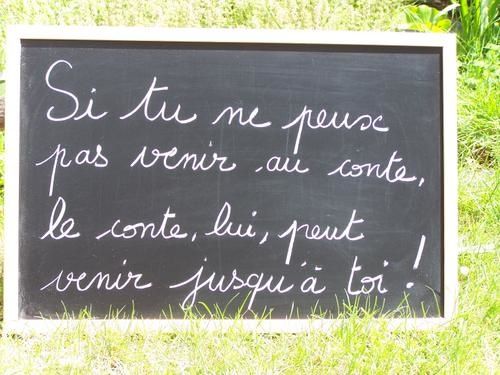 Si tu ne peux
pas venir au conte,
le conte, lui, peut
venir jusqu'à toi !